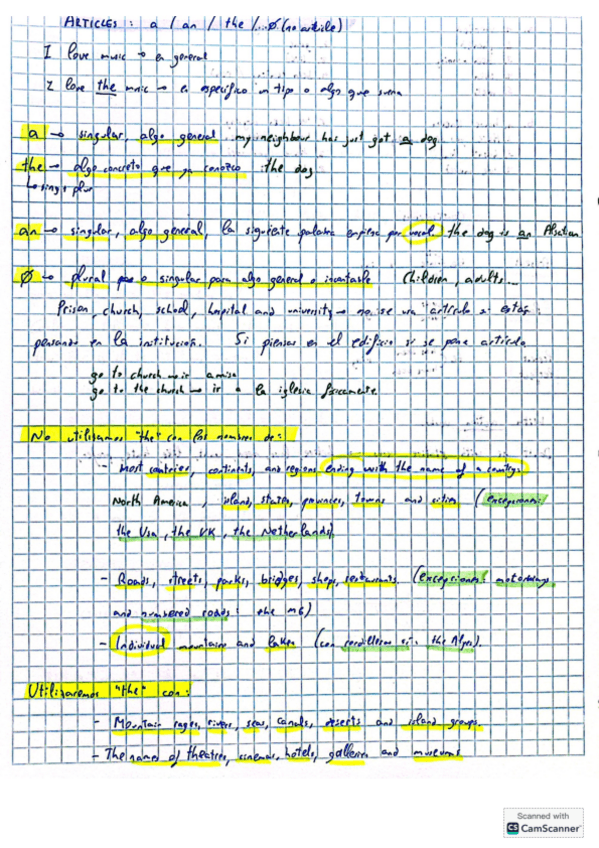 ARTICLES: a / an / the / ... Ø (no article)
I love music → en general
I love the music → en específico un tipo o algo que suena
a → singular, algo general my neighbour has just got a dog
the → algo concreto que ya conozco the dog
↳ sing y plur
an → singular, algo general, la siguiente palabra empieza por vocal. the dog is an Alsatian
Ø → plural o singular para algo general o incontable Children, adults...
Prison, church, school, hospital and university → no se usa artículo si estás
pensando en la institución. Si piensas en el edificio si se pone artículo
go to church → ir a misa
go to the church → ir a la iglesia físicamente
No utilizamos "the" con los nombres de:
- Most countries, continents, and regions ending with the name of a country
North America, island, states, provinces, towns and cities (excepciones:
the Usa, the UK, the Netherlands)
- Roads, streets, parks, bridges, shops, restaurants. (excepciones: motorways
and numbered roads: the m6)
- Individual mountains and lakes (con cordilleras si: the Alps).
Utilizaremos "the" con:
- Mountain rages, rivers, seas, canals, deserts and island groups.
- The names of theatres, cinemas, hotels, galleries and museums
Scanned with
CS CamScanner